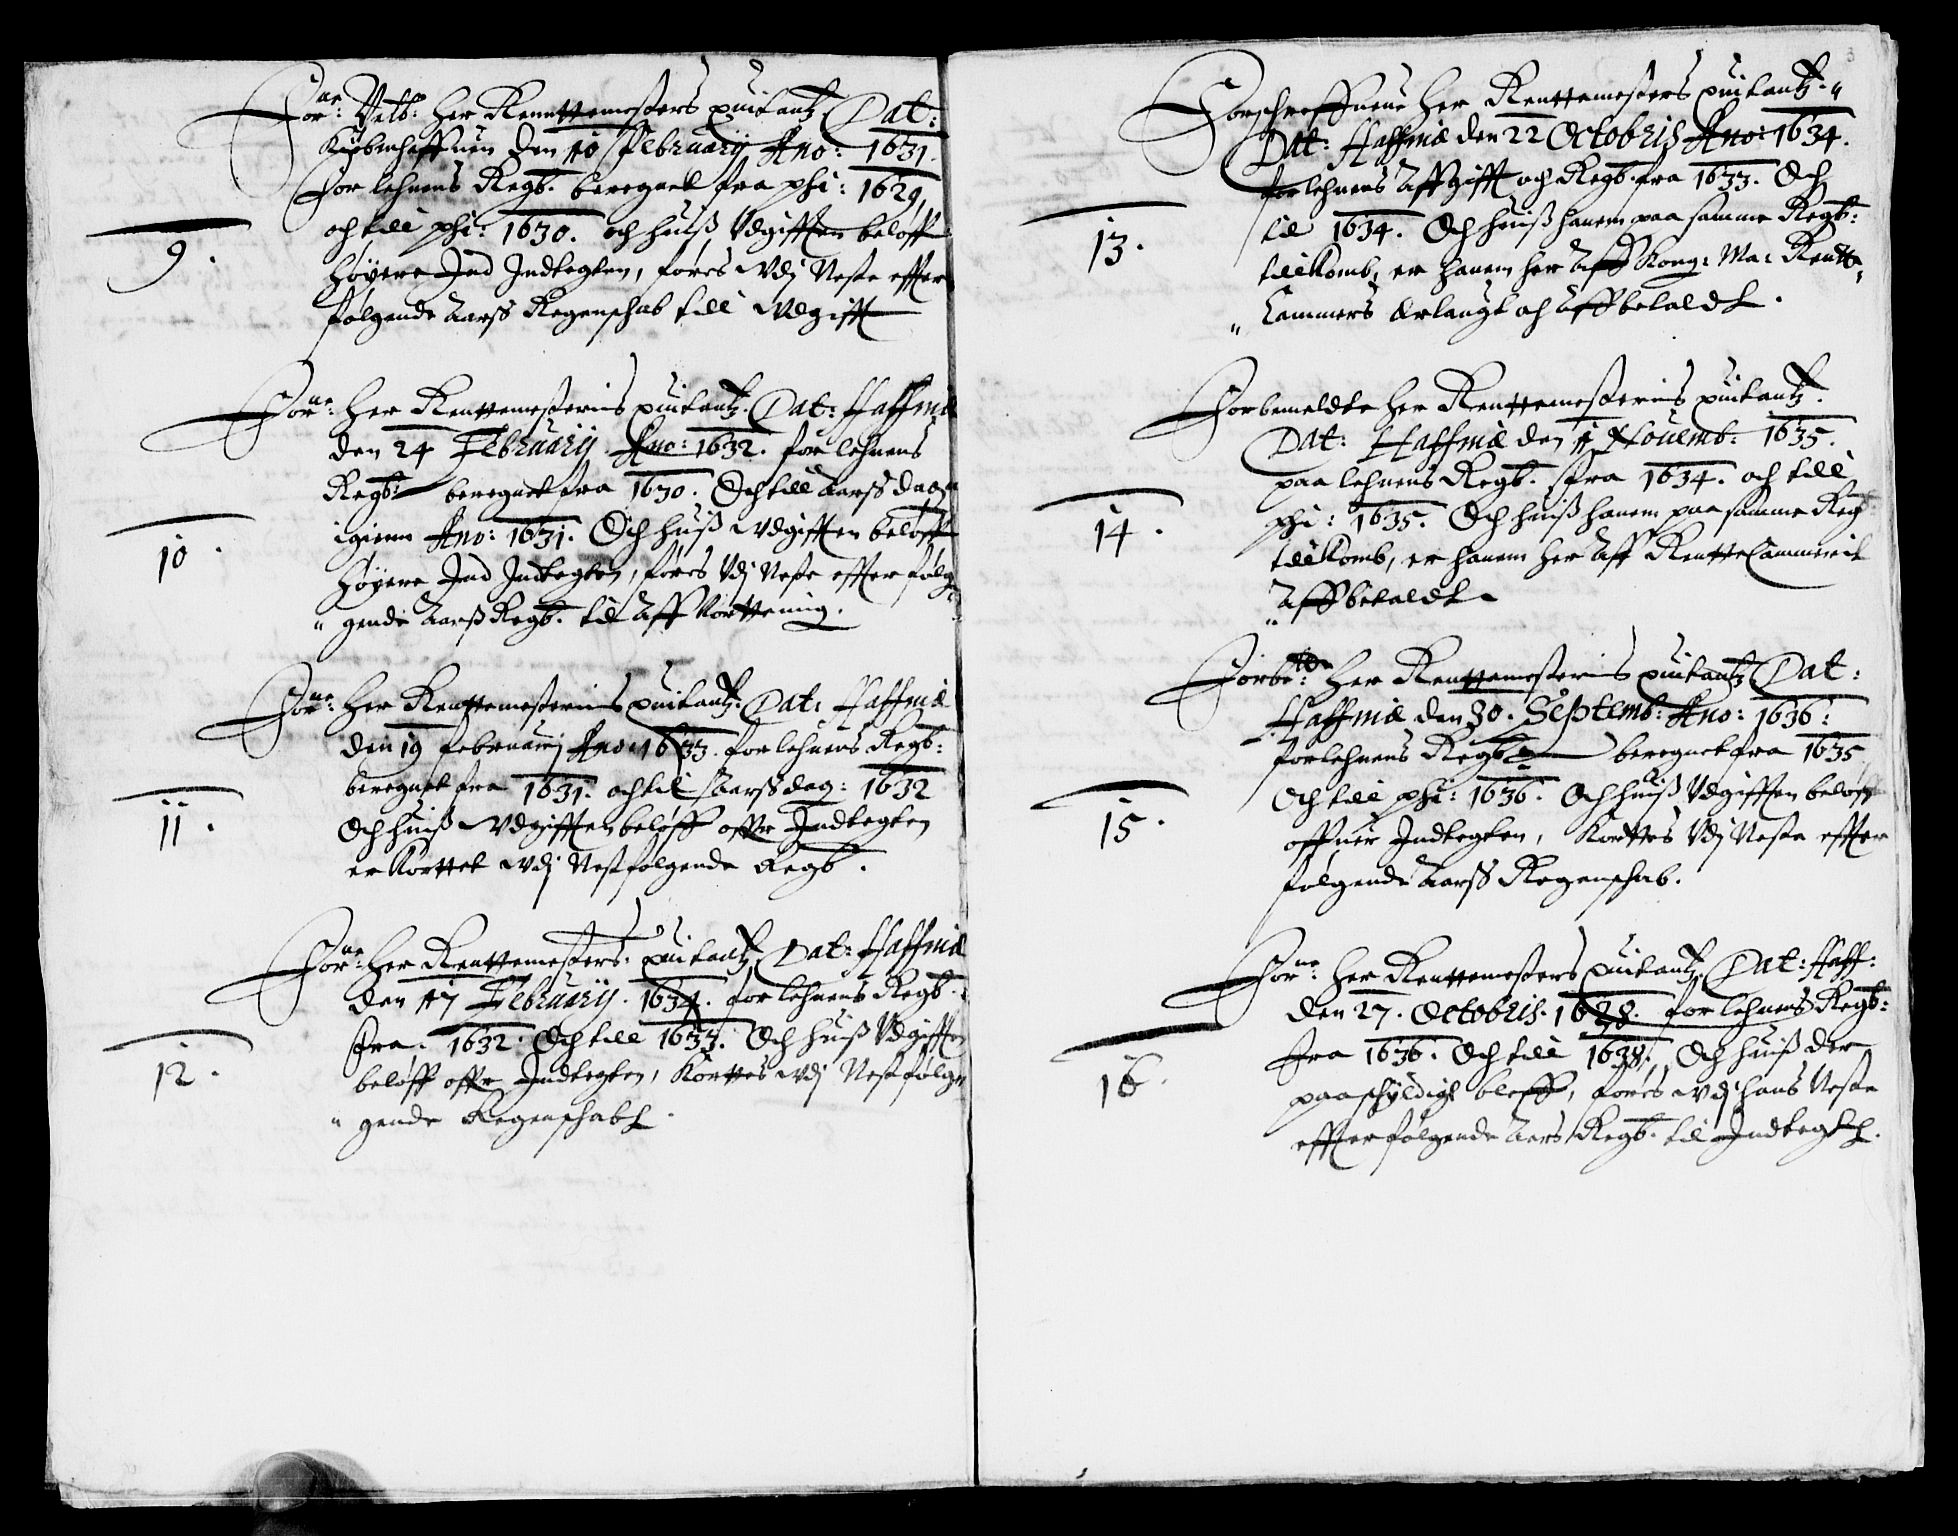 Forne: Velb: Her Renntemesters quitantz Dat:
Kiøbenhaffuen den 10 February Ano: 1631.
For lehnens Regb. beregnet fra phi: 1629,
och till phi: 1630. och huiß Vdgifften beløff
9.
høyere Ind Indtegten, føres Vdj Neste effter
følgende Aarss Regenschab till Vdgifft
Forne: Her Renttemesterins quitantz. Dat: Haffniæ
den 24 February Ano: 1632. for lehnens
Regb: beregnet fra 1630. Och till Aarss dagen
igienn Ano: 1631. Och huiß Vdgifften beløff
10.
høyere Ind Indtegten, føres Vdj Neste effter følg=
" gende Aarß Regb. til Aff Kortteninng.
Forne: Her Renttemesterins quitantz. Dat: Haffniæ
den 19 February Ano: 1633. for lehnens Regb:
beregnet fra 1631. och til Aarss dag: 1632
11.
Och huiß Vdgifften beløff offr Indtegten
er Korttet Vdj Nestfølgende Regb.
Forne: Her Renttemesters quitantz, Dat: Haffniæ
den 17 February. 1634. for lehnens Regb.
Fra. 1632. Och till 1633. Och huiß Vdgifften
12.
beløff offr Indtegten, Korttes Vdj Nestfølgn
" gende Regenschab.
3
Forschreffnene Her Renttemesters quitantz. "
Dat: Haffniæ den 22 Octobris Ano: 1634.
for lehnens Affgifft och Regb. fra 1633. Och
til 1634. Och huiß hanem paa samme Regb:
13.
tillkomb, er hanem her Aff Kong: Ma: Rentte=
" Cammers Erlangt och Aff betaldt.
Forbemeldte Her Renttemesterins quitantz.
Dat: Haffniæ den 11 Nouemb: 1635.
paa lehnens Regb. Fra 1634. och till
phi: 1635. Och huiß hanem paa samme Reg
14.
tillkomb, er hanem her Aff RentteCammerit
" Aff betaldt
Forbete: Her Renttemesterins quitantz Dat:
Haffniæ den 30. Septemb: Ano: 1636:
for lehnens Regb: beregnet fra 1635
Och till phi: 1636. Och huiß Vdgifften beløff
15.
offuer Indtegten, Korttes Vdj Neste effter
følgende Aarss Regenschab.
Forne: Her Renttemesters quitantz. Dat: Haff:
den 27. Octobris. 1638. for lehnens Regb:
Fra 1636. Och till 1638. Och huiß der
16.
paa schyldigh bleff, føres Vdj hans Neste
effter følgende Aars Regb. til Indtegt.